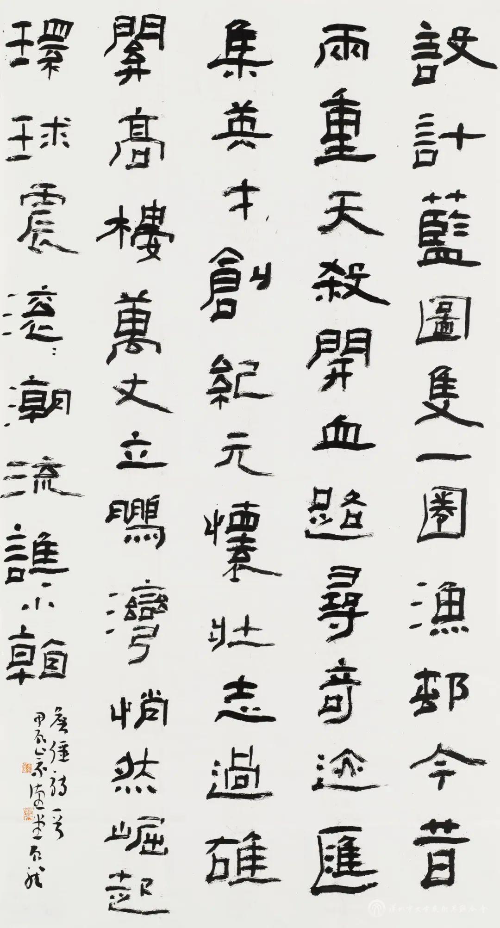 設計藍圖隻一圈漁邨今昔
兩重天殺開血路尋奇迹匯
集英才創紀元懷壯志過礁
關高樓萬丈立鵬灣悄然崛起
環球震滾滾潮流誰小